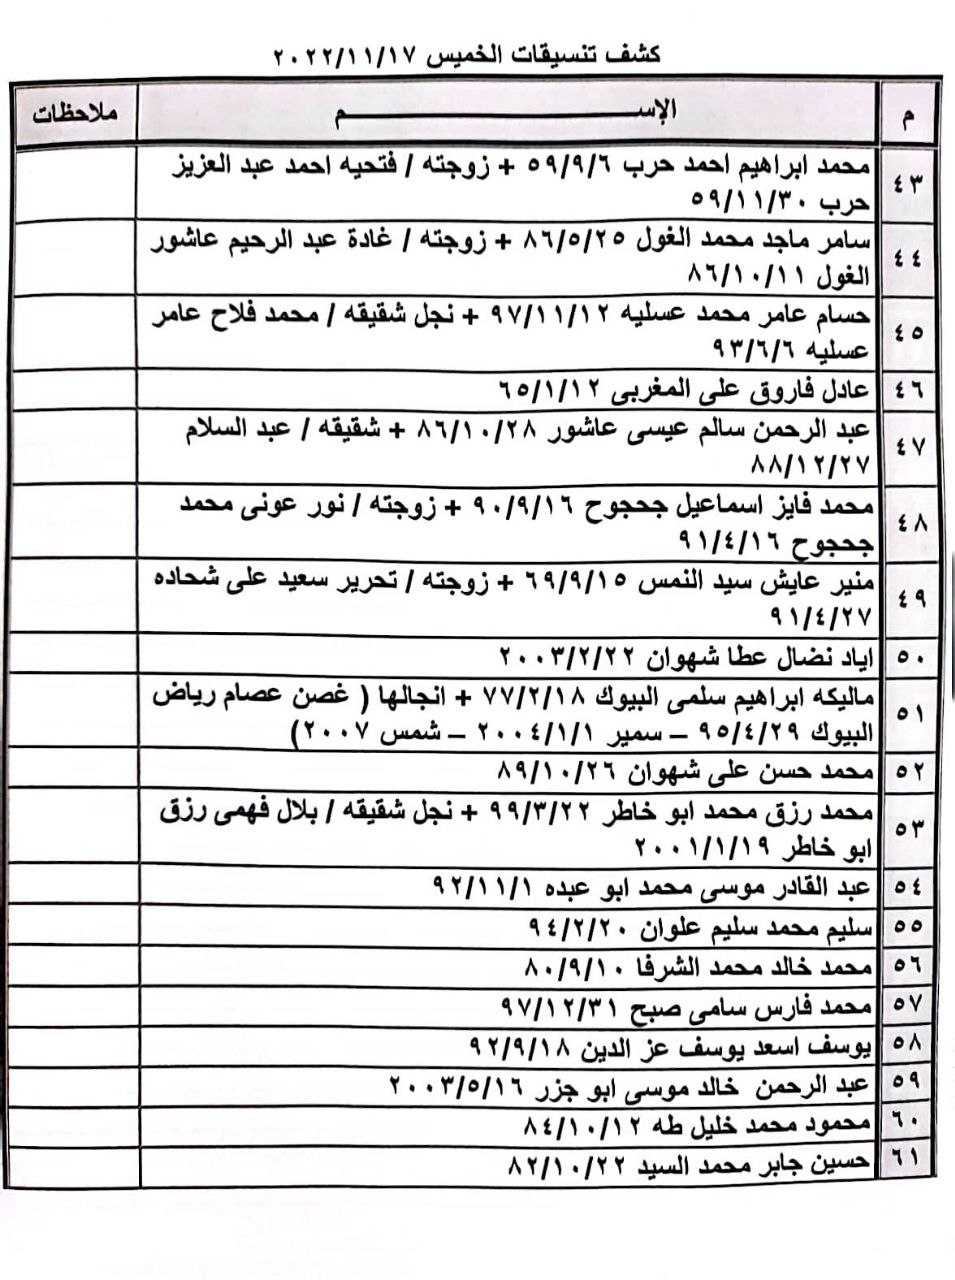 كشف تنسيقات الخميس ٢٠٢٢/١١/١٧
م الإســــــــم ملاحظات
٤٣ محمد ابراهيم احمد حرب ٥٩/٩/٦ + زوجته / فتحيه احمد عبد العزيز
حرب ٥٩/١١/٣٠
٤٤ سامر ماجد محمد الغول ٨٦/٥/٢٥ + زوجته / غادة عبد الرحيم عاشور
الغول ٨٦/١٠/١١
٤٥ حسام عامر محمد عسليه ٩٧/١١/١٢ + نجل شقيقه / محمد فلاح عامر
عسليه ٩٣/٦/٦
٤٦ عادل فاروق على المغربى ٦٥/١/١٢
٤٧ عبد الرحمن سالم عيسى عاشور ٨٦/١٠/٢٨ + شقيقه / عبد السلام
٨٨/١٢/٢٧
٤٨ محمد فايز اسماعيل جحجوح ٩٠/٩/١٦ + زوجته / نور عونى محمد
جحجوح ٩١/٤/١٦
٤٩ منير عايش سيد النمس ٦٩/٩/١٥ + زوجته / تحرير سعيد على شحاده
٩١/٤/٢٧
٥٠ اياد نضال عطا شهوان ٢٠٠٣/٢/٢٢
٥١ ماليكه ابراهيم سلمى البيوك ٧٧/٢/١٨ + انجالها ( غصن عصام رياض
البيوك ٩٥/٤/٢٩ – سمير ٢٠٠٤/١/١ – شمس ٢٠٠٧)
٥٢ محمد حسن على شهوان ٨٩/١٠/٢٦
٥٣ محمد رزق محمد ابو خاطر ٩٩/٣/٢٢ + نجل شقيقه / بلال فهمى رزق
ابو خاطر ٢٠٠١/١/١٩
٥٤ عبد القادر موسى محمد ابو عبده ٩٢/١١/١
٥٥ سليم محمد سليم علوان ٩٤/٢/٢٠
٥٦ محمد خالد محمد الشرفا ٨٠/٩/١٠
٥٧ محمد فارس سامى صبح ٩٧/١٢/٣١
٥٨ يوسف اسعد يوسف عز الدين ٩٢/٩/١٨
٥٩ عبد الرحمن خالد موسى ابو جزر ٢٠٠٣/٥/١٦
٦٠ محمود محمد خليل طه ٨٤/١٠/١٢
٦١ حسين جابر محمد السيد ٨٢/١٠/٢٢